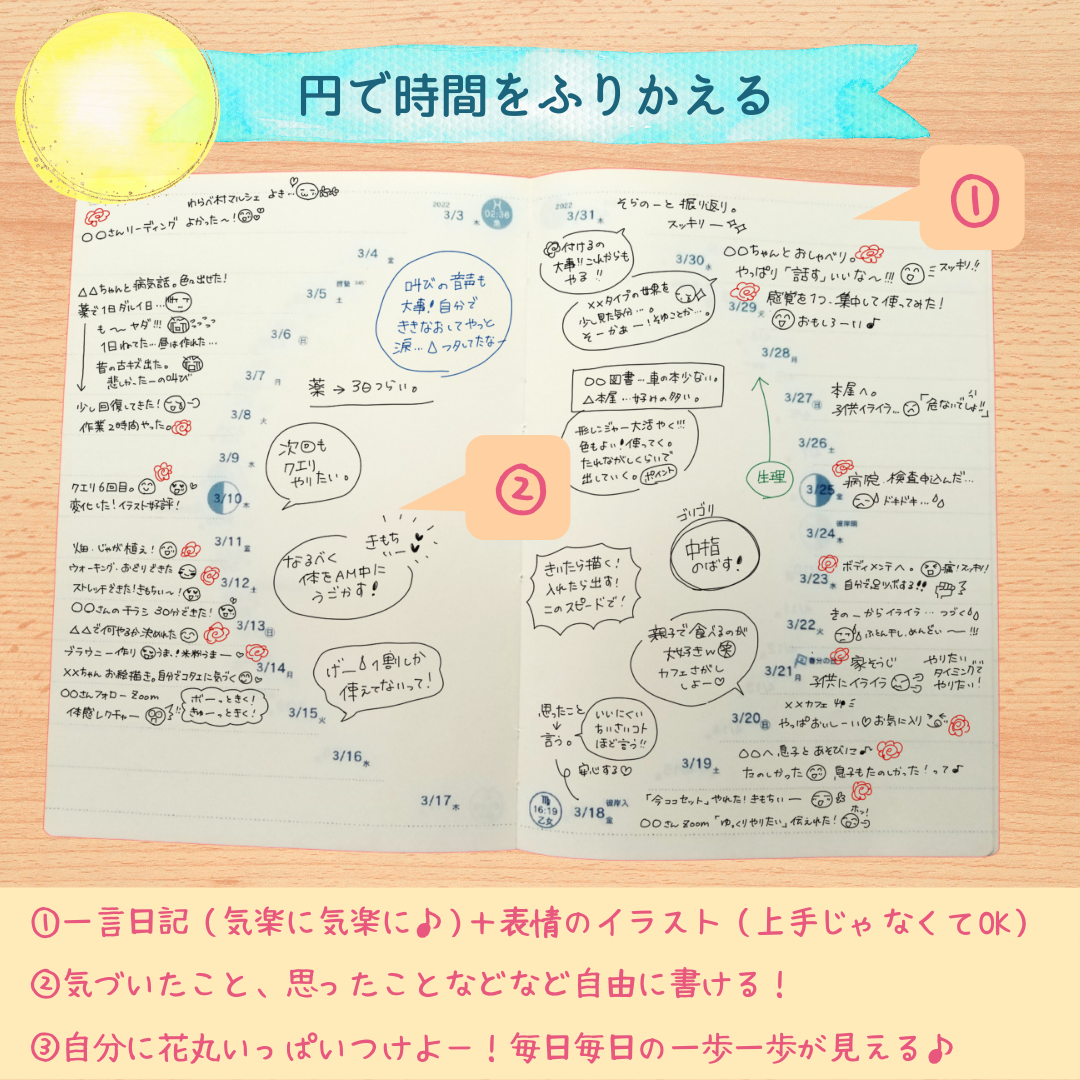 円で時間をふりかえる
①
わらべ村マルシェ よき…
〇〇さんリーディング よかった〜!
2022
3/3 木
02:36
魚
3/4 金
△△ちゃんと病気話。色々出せた!
3/5 土
薬で1日ダル1日…
も〜ヤダ!!!
1日ねてた…昼は作れた…
3/6 日
昔の古キズ出た。
悲しかったーの叫び
3/7 月
少し回復してきた!
作業2時間やった。
3/8 火
3/9 水
クエリ6回目。
変化した!イラスト好評!
3/10 木
3/11 金
畑・じゃが植え!
ウォーキング・おどりできた
3/12 土
ストレッチできた!きもちい〜!
〇〇さんのチラシ 30分できた!
3/13 日
△△で何やるか決めれた
ブラウニー作り うま!米粉うまー
3/14 月
××ちゃん お絵描き。自分でコタエに気づく
〇〇さんフォロー zoom
体感レクチャー
ボーっときく!
きゅーっときく!
3/15 火
3/16 水
3/17 木
叫びの音声も
大事!自分で
ききなおしてやっと
涙…
薬→3日つらい。
次回も
クエリ
やりたい。
②
きもち
いー
なるべく
体をAM中に
うごかす!
げー 1割しか
使えてないって!
2022
3/31 木
そらのーと振り返り。
スッキリー
付けるの
大事!!これからも
やる!!
3/30 水
〇〇ちゃんとおしゃべり。
やっぱり「話す」いいな〜!!!
スッキリ!!
××タイプの世界を
少し見た気分…。
そーかぁー!そゆことか…。
3/29 火
感覚を1つ、集中して使ってみた!
おもしろーい♪
3/28 月
〇〇図書…車の本少ない。
△本屋…好みの多い。
3/27 日
本屋へ。
子供イライラ…「危ないでしょ!!」
形レンジャー大活やく!!!
色もよい!使ってく。
たれながしくらいで
出していく。ポイント
3/26 土
生理
3/25 金
病院 検査申込んだ…
ドキドキ…
3/24 木
彼岸明
ゴリゴリ
中指
のばす!
3/23 水
ボディメンテへ。痛!スッキリ!
自分で足ツボする!!
きいたら描く!
入れたら出す!
このスピードで!
3/22 火
きのーからイライラ…つづく
ふとん干し、めんどい〜!!!
親子で食べるのが
大好きw 笑
カフェさがし
しよー♡
3/21 月
春分の日
家そうじ
子供にイライラ
やりたい
タイミングで
やりたい!
3/20 日
××カフェ
やっぱおいしーい♡お気に入り
思ったこと
↓
言う。
いいにくい
ちいさいコト
ほど言う!!
安心する♡
3/19 土
〇〇へ息子とあそびに♪
たのしかった 息子もたのしかった!って♪
16:19
乙女
3/18 金
彼岸入
「今ココセット」やれた!きもちいー
〇〇さん zoom「ゆっくりやりたい」伝えれた!
ホッ!
①一言日記(気楽に気楽に♪)+表情のイラスト(上手じゃなくてOK)
②気づいたこと、思ったことなどなど自由に書ける!
③自分に花丸いっぱいつけよー!毎日毎日の一歩一歩が見える♪